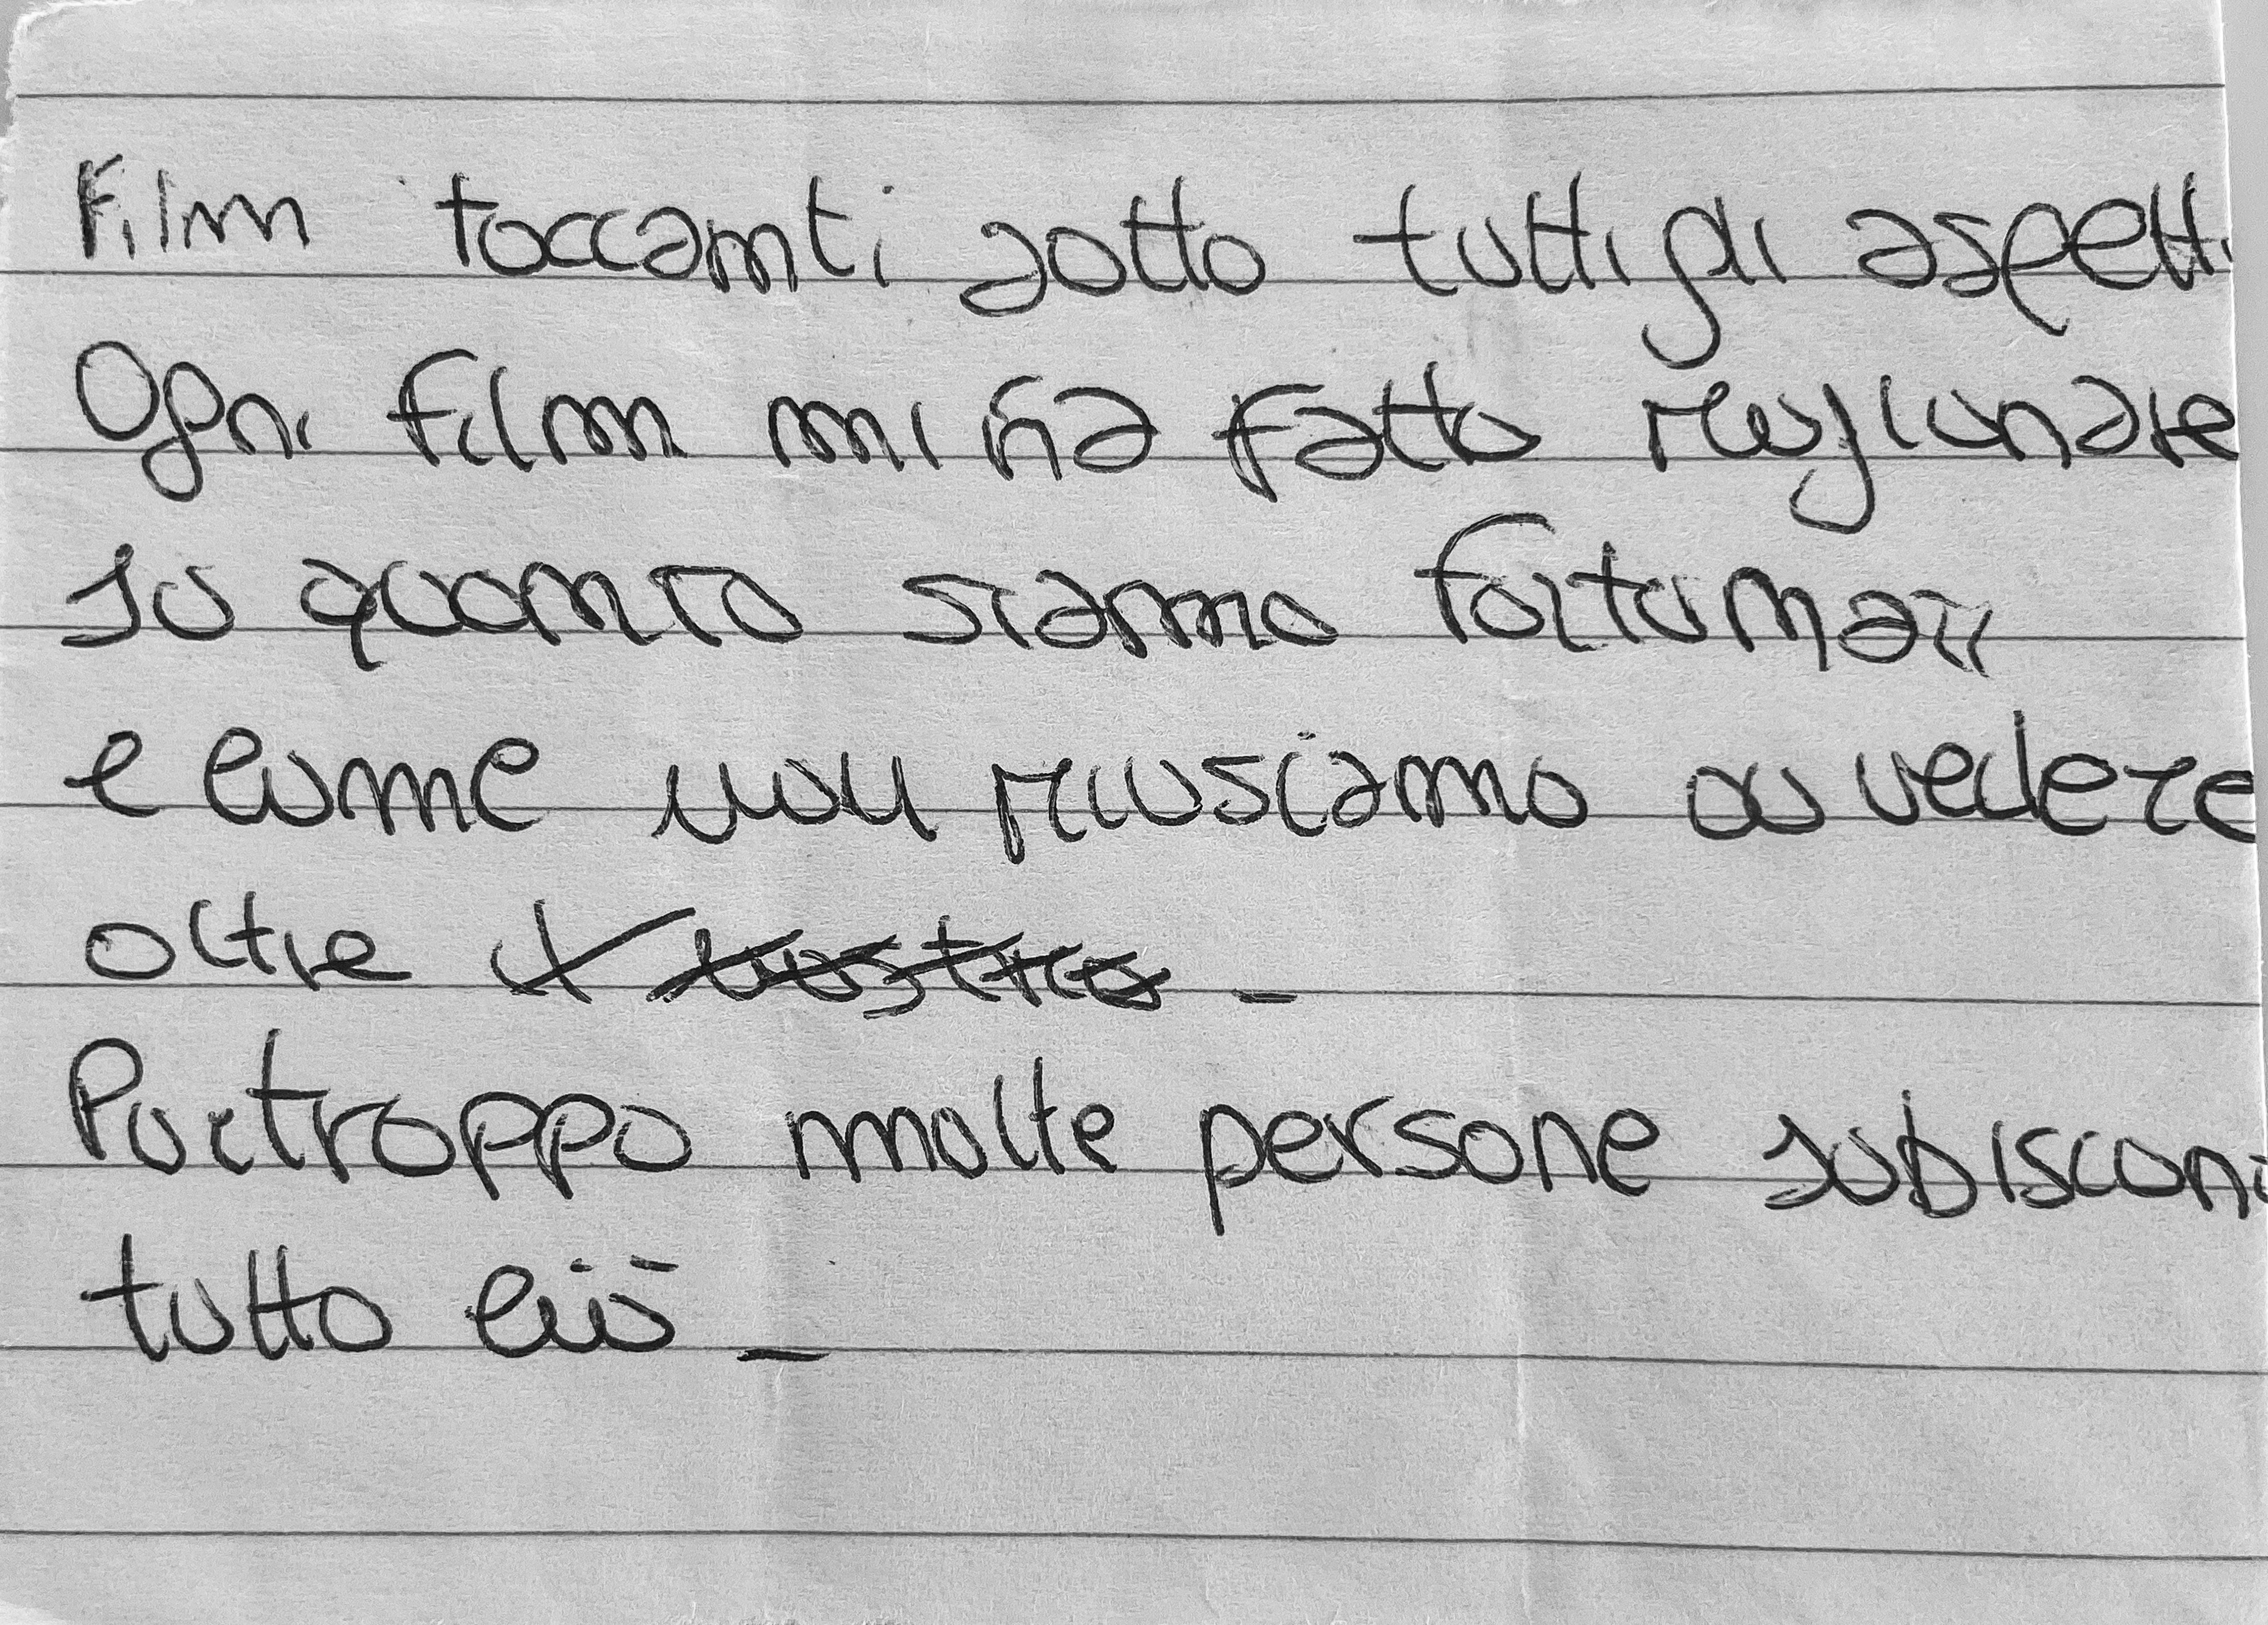 Film toccanti sotto tutti gli aspetti
Ogni film mi ha fatto ragionare
su quanto siamo fortunati
e come non riusciamo a vedere
oltre
Purtroppo molte persone subiscono
tutto ciò